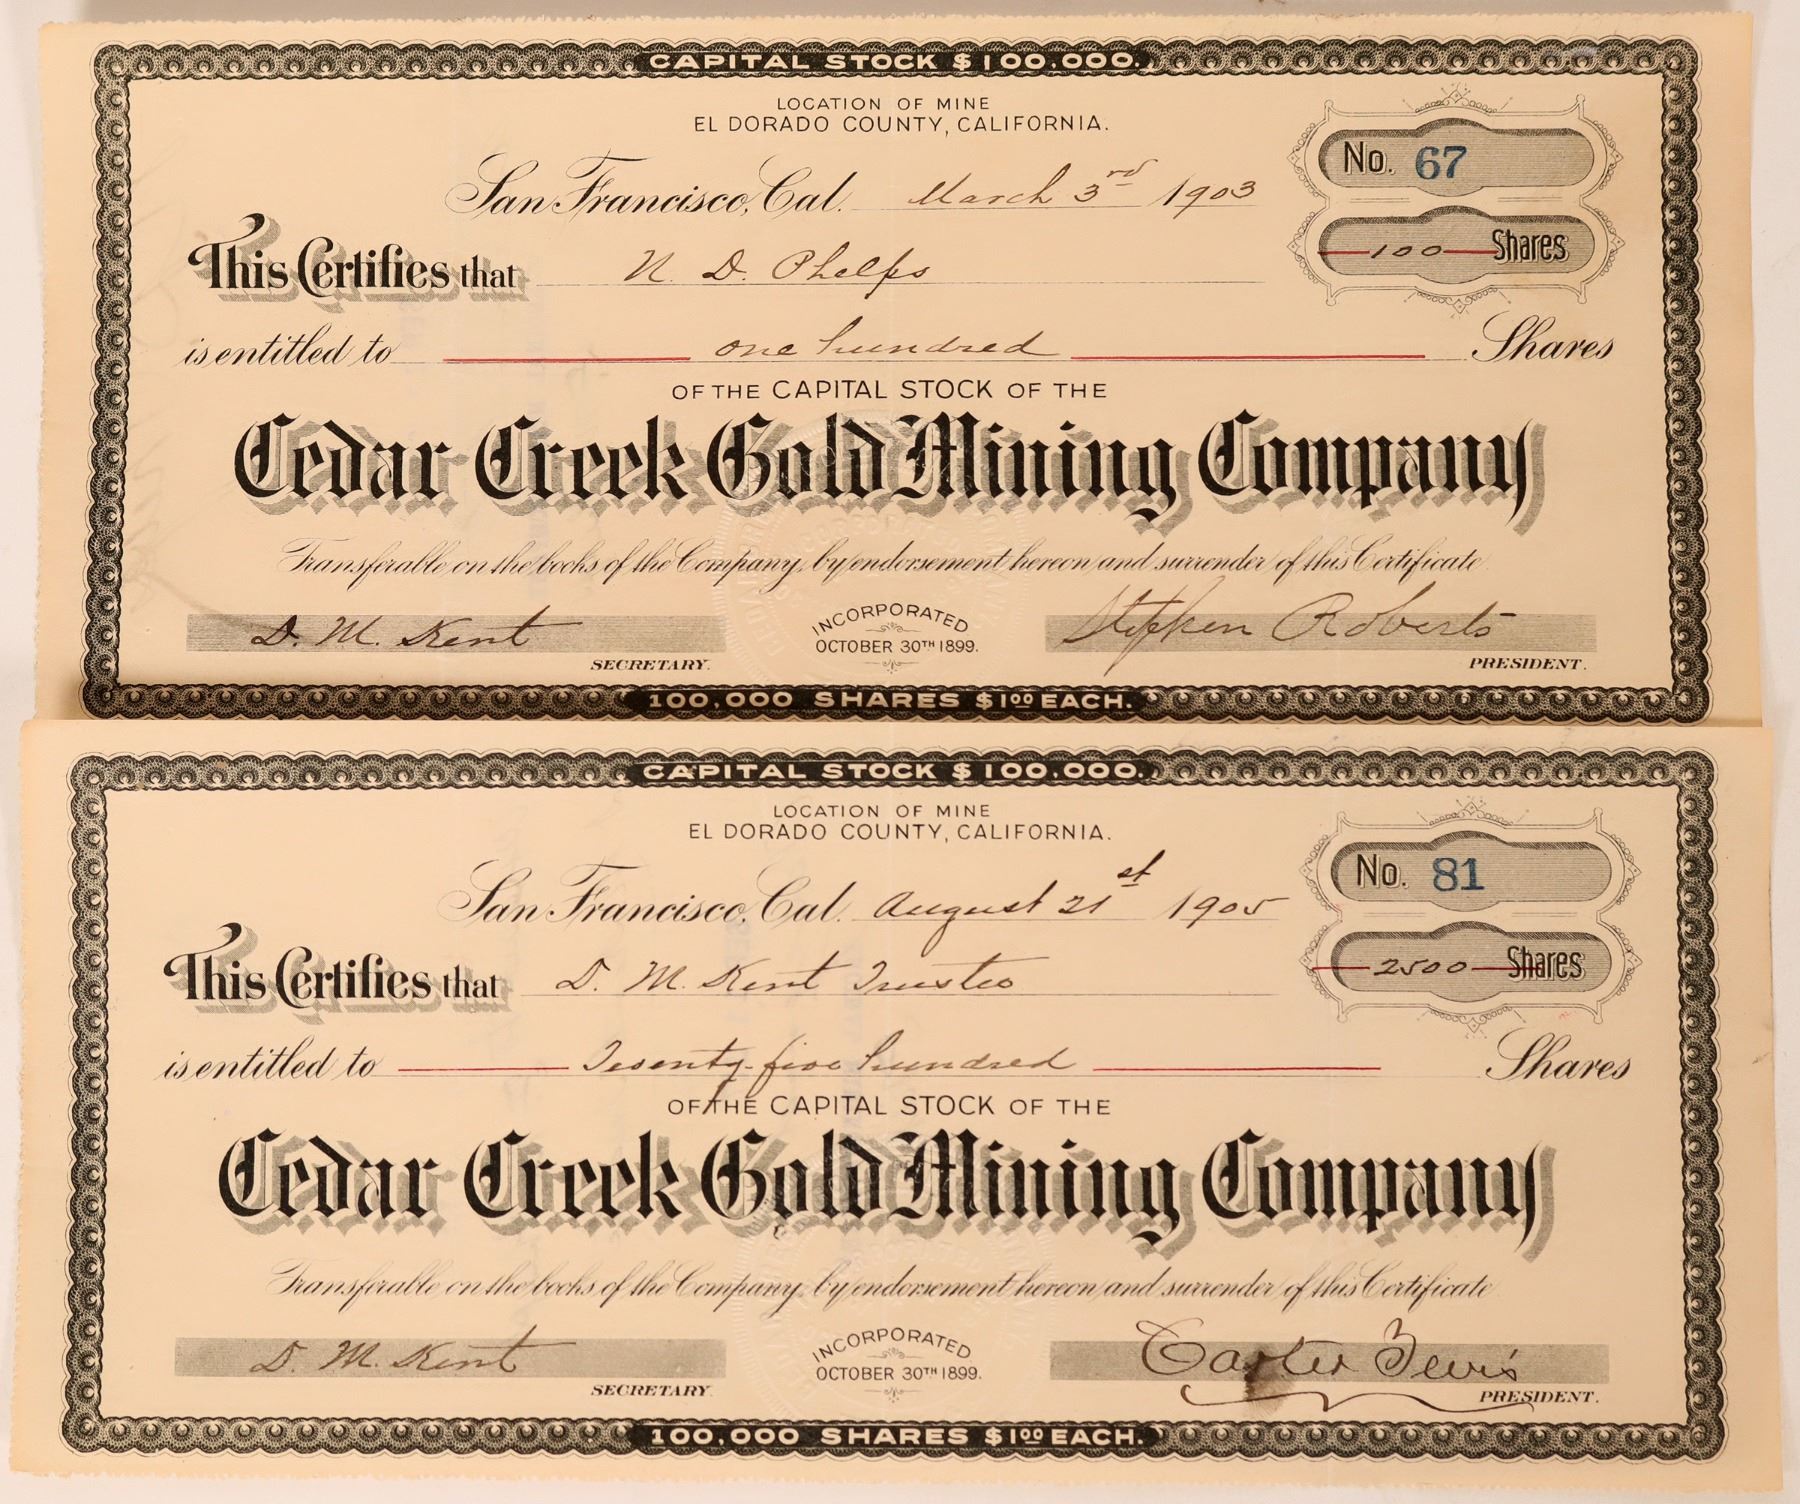 CAPITAL STOCK $100.000.
LOCATION OF MINE
EL DORADO COUNTY, CALIFORNIA.
No. 67
San Francisco, Cal. March 3rd 1903
100 Shares
This Certifies that N. D. Phelps
is entitled to one hundred Shares
OF THE CAPITAL STOCK OF THE
Cedar Creek Gold Mining Company
Transferable on the books of the Company, by endorsement hereon and surrender of this Certificate
D. M. Kent
SECRETARY.
INCORPORATED
OCTOBER 30TH 1899.
Stephen Roberts
PRESIDENT.
100,000 SHARES $1.00 EACH.
CAPITAL STOCK $100.000.
LOCATION OF MINE
EL DORADO COUNTY, CALIFORNIA.
No. 81
San Francisco, Cal. August 21st 1905
2500 Shares
This Certifies that D. M. Kent Trustee
is entitled to Twenty-five hundred Shares
OF THE CAPITAL STOCK OF THE
Cedar Creek Gold Mining Company
Transferable on the books of the Company, by endorsement hereon and surrender of this Certificate
D. M. Kent
SECRETARY.
INCORPORATED
OCTOBER 30TH 1899.
Carter Tevis
PRESIDENT.
100,000 SHARES $1.00 EACH.